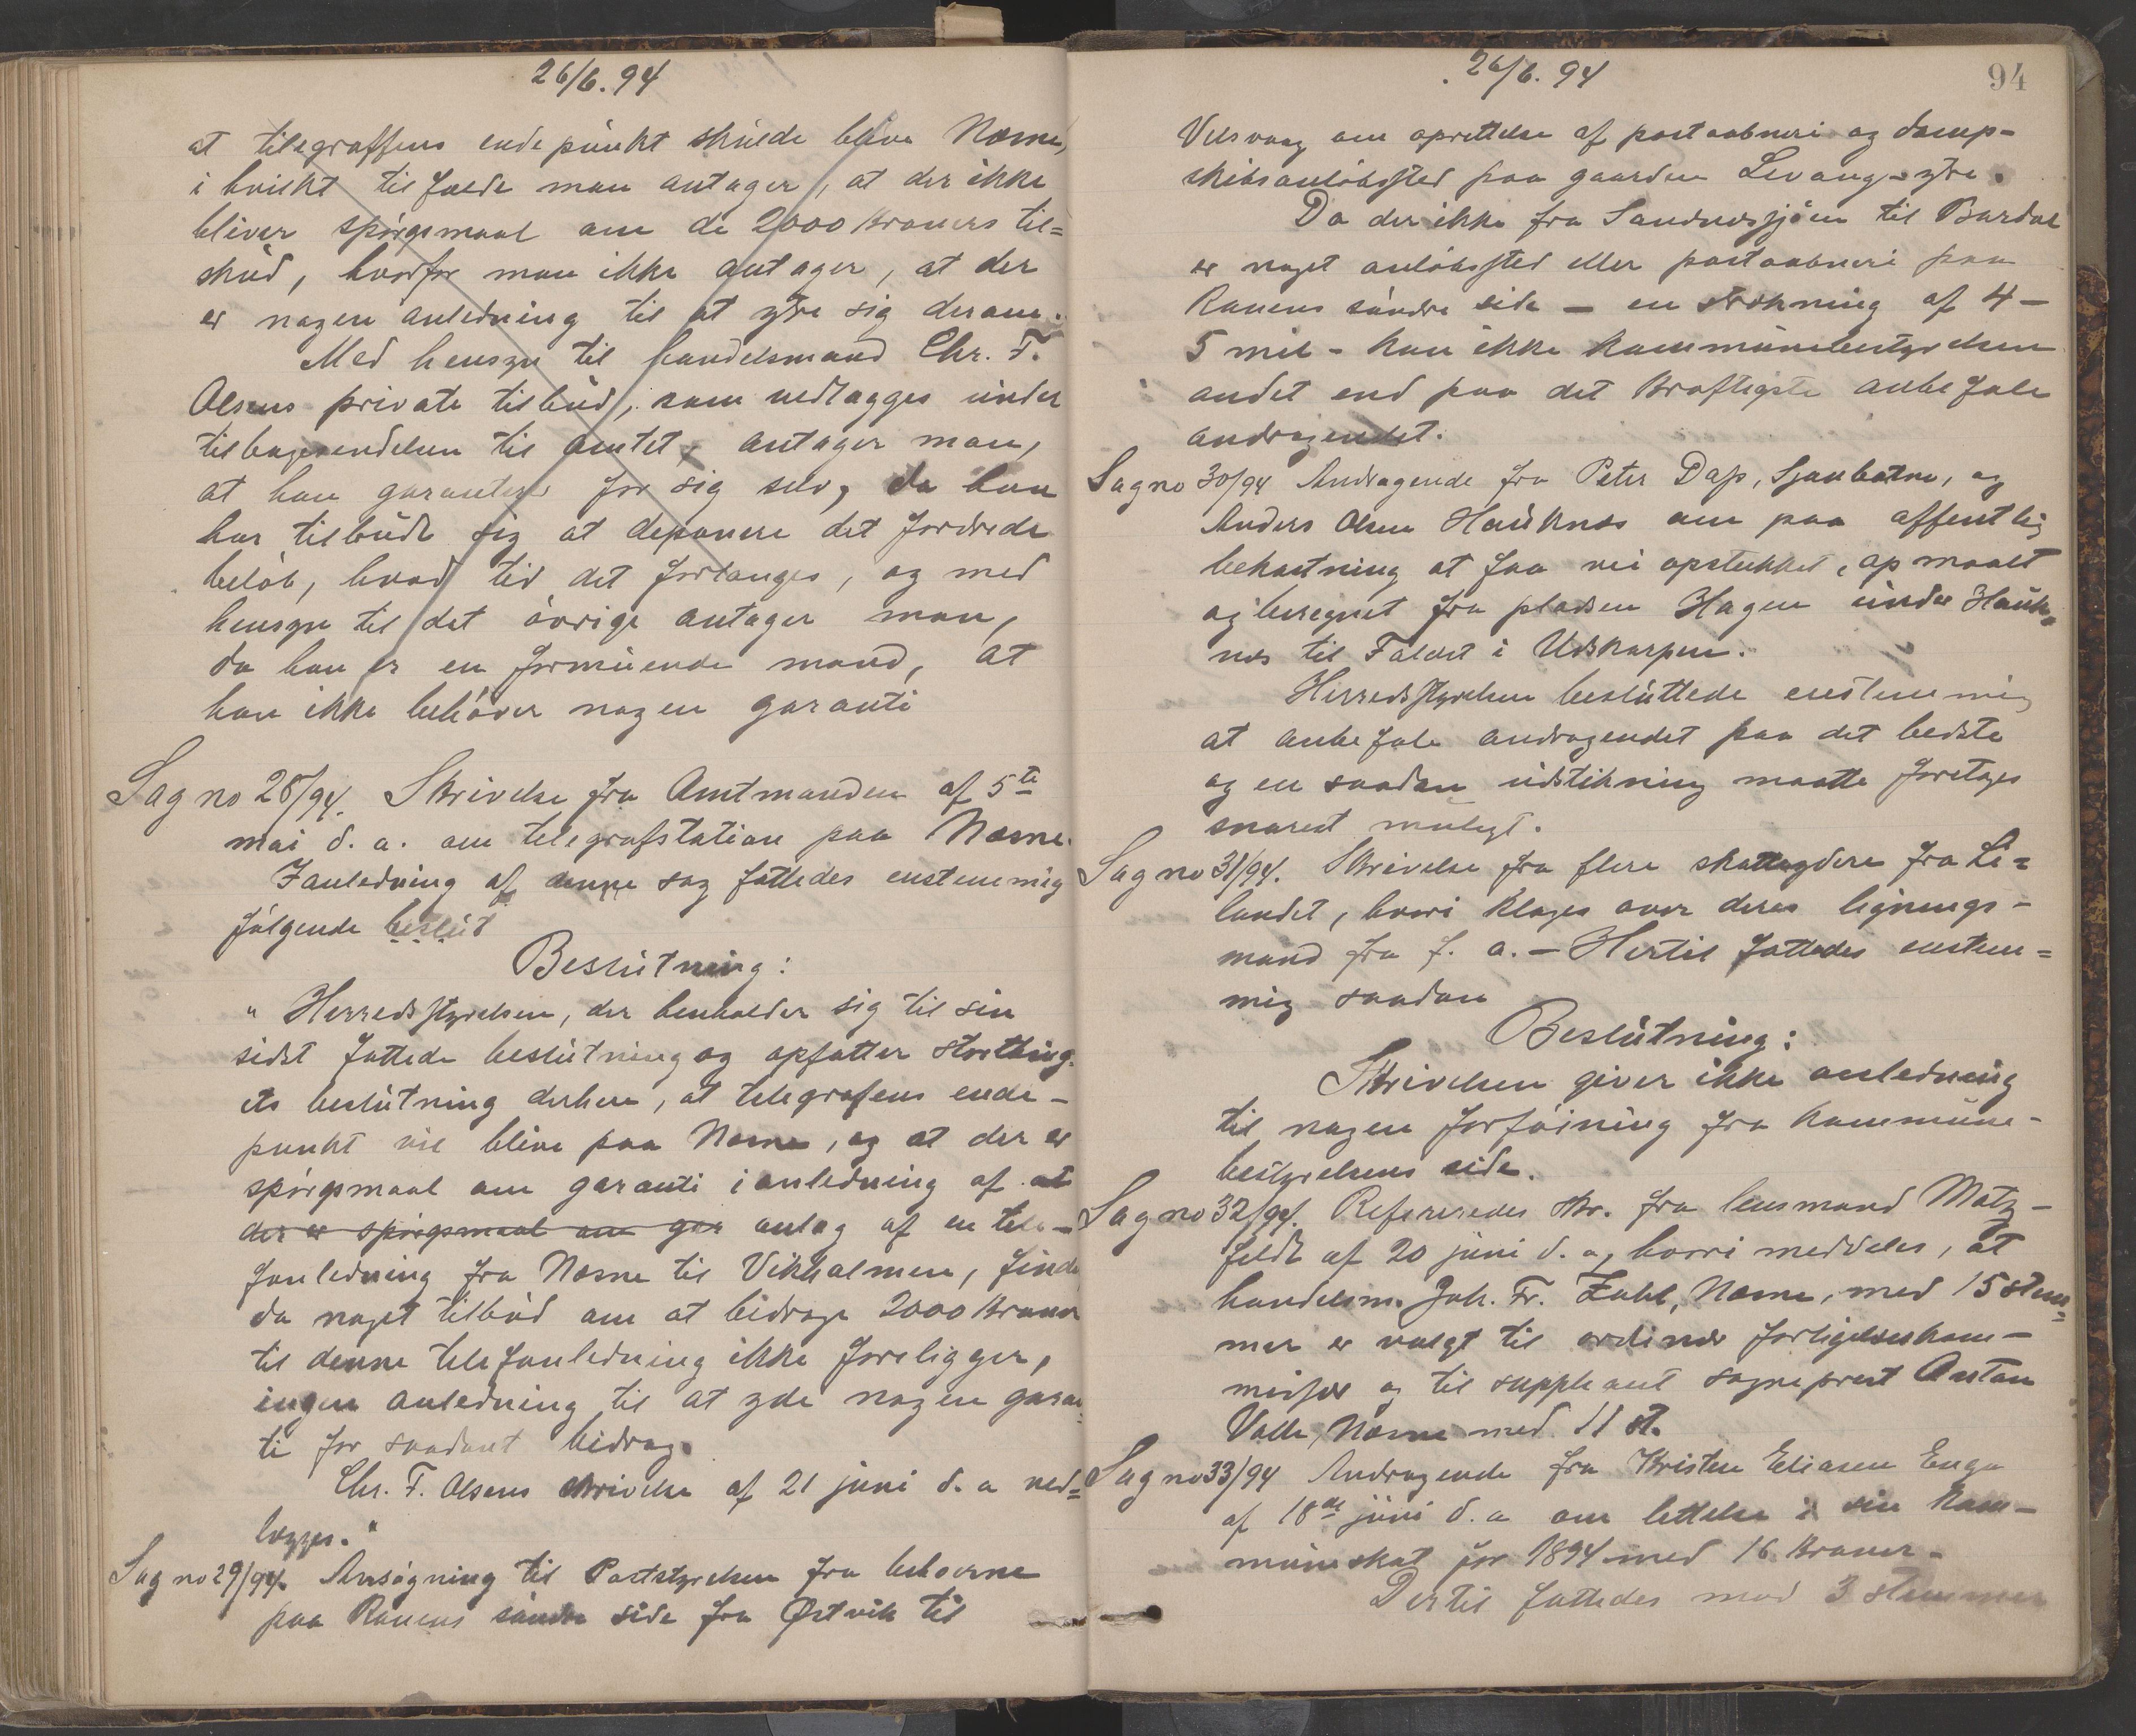 26/6. 94
at telegraffens endepunkt skulde blive Næsne,
i hvilkt tilfælde man antager, at der ikke
bliver spørgsmaal om de 2000 kroners til=
skud, hvorfor man ikke antager, at der
er nogen anledning til at ytre sig derom.
Med hensyn til handelsmand Chr. F.
Olsens private tilbud, som vedlægges under
tilbagesendelsen til amtet, antager man,
at han garanterer for sig selv, da han
har tilbudt sig at deponere det fordrede
beløb, hvad tid det forlanges, og med
hensyn til det øvrige antager man,
da han er en formuende mand, at
han ikke behøver nogen garanti
Sag no 28/94. Skrivelse fra Amtmanden af 5te
mai d. a. om telegrafstation paa Næsne.
I anledning af denne sag fattedes enstemmig
følgende beslut
Beslutning:
"Herredsstyrelsen, der henholder sig til sin
sidst fattede beslutning og opfatter storthing-
ets beslutning derhen, at telegrafens ende-
punkt vil blive paa Næsne, og at der er
spørgsmaal om garanti i anledning af at
der er spørgsmaal om gar anlæg af en tele-
fonledning fra Næsne til Vikholmen, finde
da noget tilbud om at bidrage 2000 kroner
til denne telefonledning ikke foreligger,
ingen anledning til at yde nogen garan=
ti for saadant bidrag.
Chr. F. Olsens skrivelse af 21 juni d. a. ved=
lægges."
Sag no 29/94. Ansøgning til Poststyrelsen fra beboerne
paa Ranens søndre side fra Østvik til
26/6. 94
94
Velsvaag om oprettelse af postaabneri og damp-
skibsanløbssted paa gaarden Levang-ytre.
Da der ikke fra Sandnessjøen til Bardal
er noget anløbssted eller postaabneri paa
Ranens søndre side - en strækning af 4-
5 mil - kan ikke kommunebestyrelsen
andet end paa det kraftigste anbefale
andragendet.
Sag no 30/94 Andragende fra Peter Dass, Sjonbotn, og
Anders Olsen Hauknes om paa offentlig
bekostning at faa vei opstukket, opmaalt
og beregnet fra pladsen Hagen under Hauk=
nes til Faldet i Udskarpen.
Herredsstyrelsen besluttede enstemmig
at anbefale andragendet paa det bedste
og en saadan udstikning maatte foretages
snarest muligt.
Sag no 31/94. Skrivelse fra flere skatteydere fra Le=
landet, hvori klages over deres lignings-
mand fra f. a. - Hertil fattedes enstem=
mig saadan
Beslutning:
Skrivelsen giver ikke anledning
til nogen forføining fra kommune-
bestyrelsens side.
Sag no 32/94. Refereredes skr. fra lensmand Matz-
feldt af 20 juni d. a, hvori meddeles, at
handelsm. Joh. Fr. Zahl, Næsne, med 15 stem=
mer er valgt til ordinær forligelseskom-
missær og til suppleant sogneprest Anton
Valle, Næsne med 11 st.
Sag no 33/94 Andragende fra Kristen Eliasen Enga
af 18de juni d. a om lettelse i sin kom-
muneskat for 1894 med 16 kroner.
Dertil fattedes mod 3 stemmer